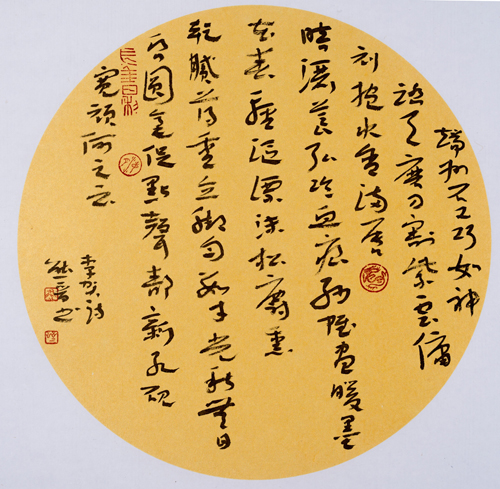 端州石工巧如神
踏天磨刀割紫雲傭
刓抱水含滿唇
暗灑萇弘冷血痕紗帷晝暖墨
花春輕漚漂沫松麝熏
乾膩薄重立脚匀數寸光秋無日
昏圓毫促點聲靜新孔硯
寬頑何足云
李賀詩
書